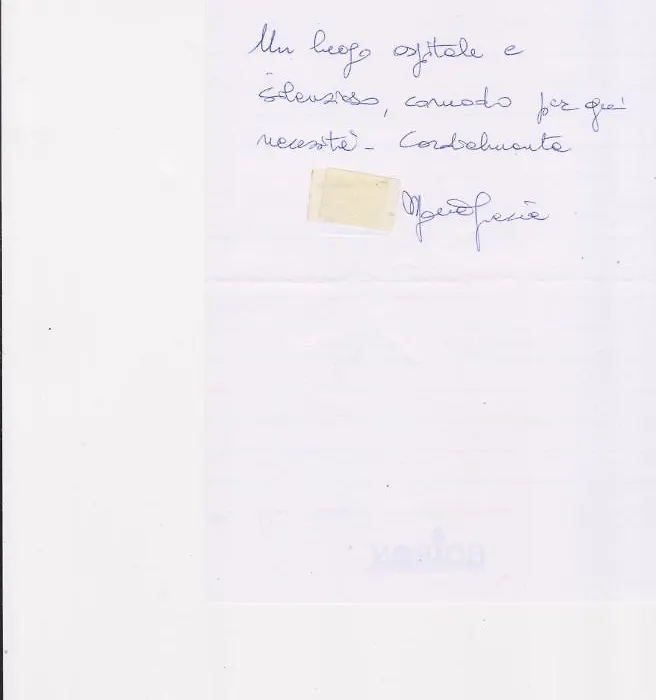 Un luogo ospitale e
silenzioso, comodo per ogni
necessità - Cordialmente
Maria Grazia